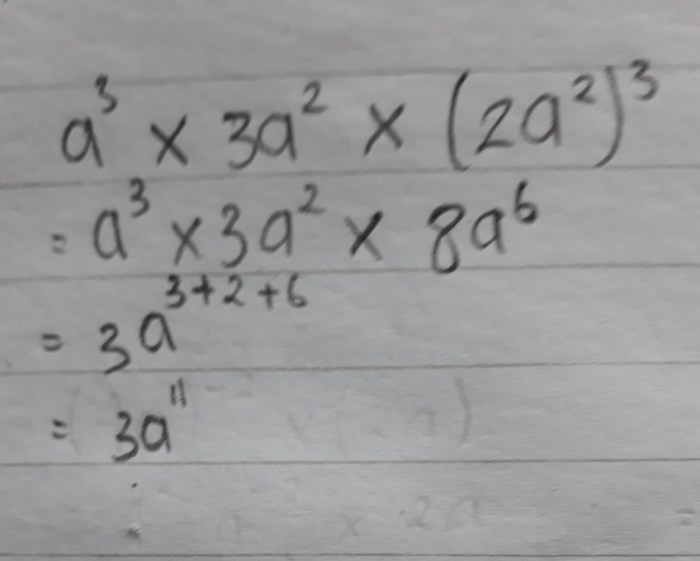 a³ × 3a² × (2a²)³
= a³ × 3a² × 8a⁶
= 3a³⁺²⁺⁶
= 3a¹¹